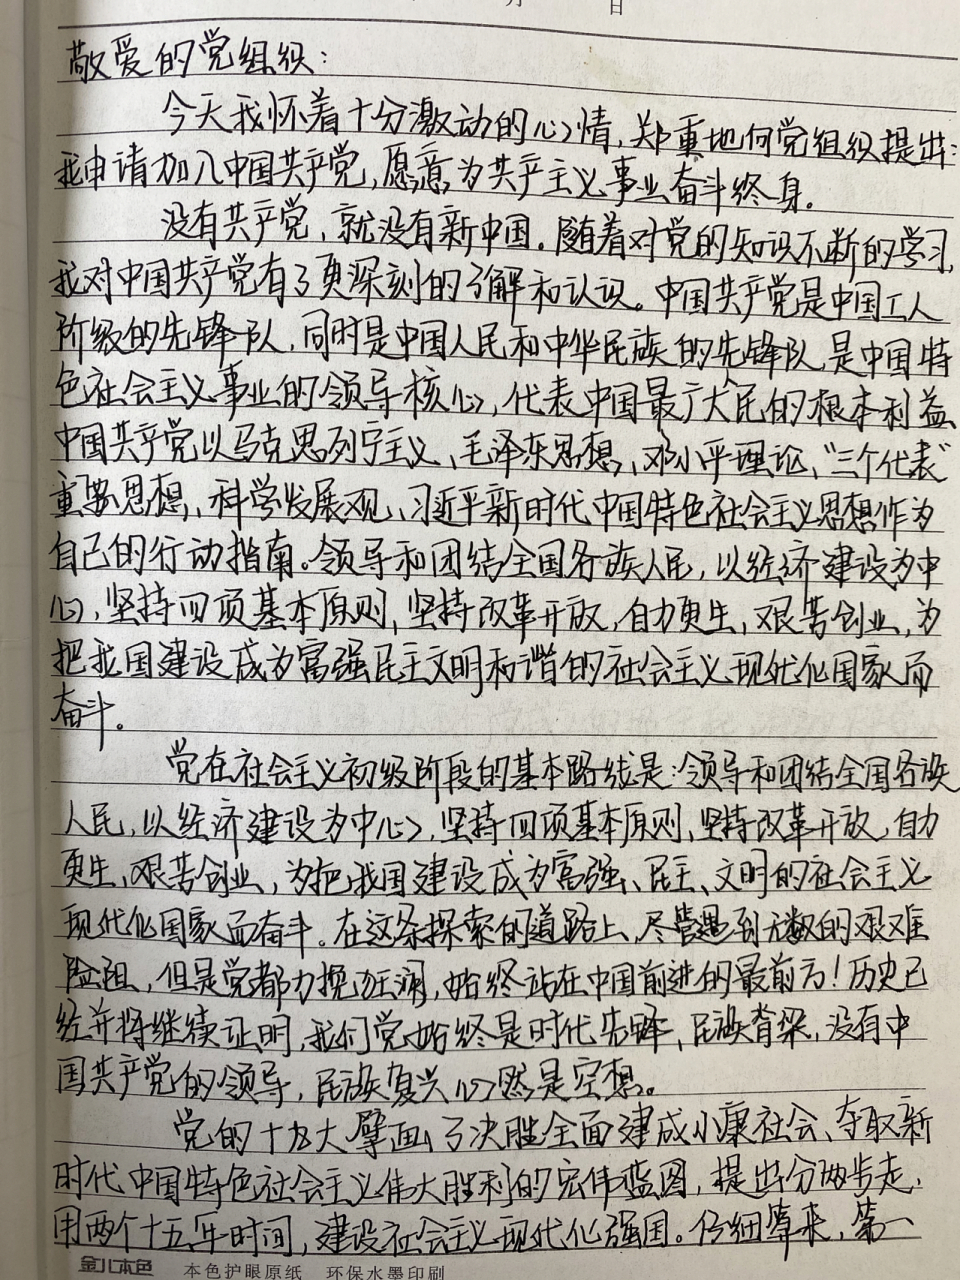 月 日
敬爱的党组织：
今天我怀着十分激动的心情，郑重地向党组织提出：
我申请加入中国共产党，愿意为共产主义事业奋斗终身。
没有共产党，就没有新中国。随着对党的知识不断的学习，
我对中国共产党有了更深刻的了解和认识。中国共产党是中国工人
阶级的先锋队，同时是中国人民和中华民族的先锋队，是中国特
色社会主义事业的领导核心，代表中国最广大人民的根本利益
中国共产党以马克思列宁主义、毛泽东思想、邓小平理论、“三个代表”
重要思想、科学发展观、习近平新时代中国特色社会主义思想作为
自己的行动指南。领导和团结全国各族人民，以经济建设为中
心，坚持四项基本原则，坚持改革开放，自力更生，艰苦创业，为
把我国建设成为富强民主文明和谐的社会主义现代化国家而
奋斗。
党在社会主义初级阶段的基本路线是：领导和团结全国各族
人民，以经济建设为中心，坚持四项基本原则，坚持改革开放，自力
更生、艰苦创业，为把我国建设成为富强、民主、文明的社会主义
现代化国家而奋斗。在这条探索的道路上，尽管遇到无数的艰难
险阻，但是党都力挽狂澜，始终站在中国前进的最前方！历史已
经并将继续证明，我们党始终是时代先锋、民族脊梁，没有中
国共产党的领导，民族复兴必然是空想。
党的十九大擘画了决胜全面建成小康社会、夺取新
时代中国特色社会主义伟大胜利的宏伟蓝图，提出分两步走，
用两个十五年时间，建设社会主义现代化强国。仔细算来，第一
金儿本色 本色护眼原纸 环保水墨印刷